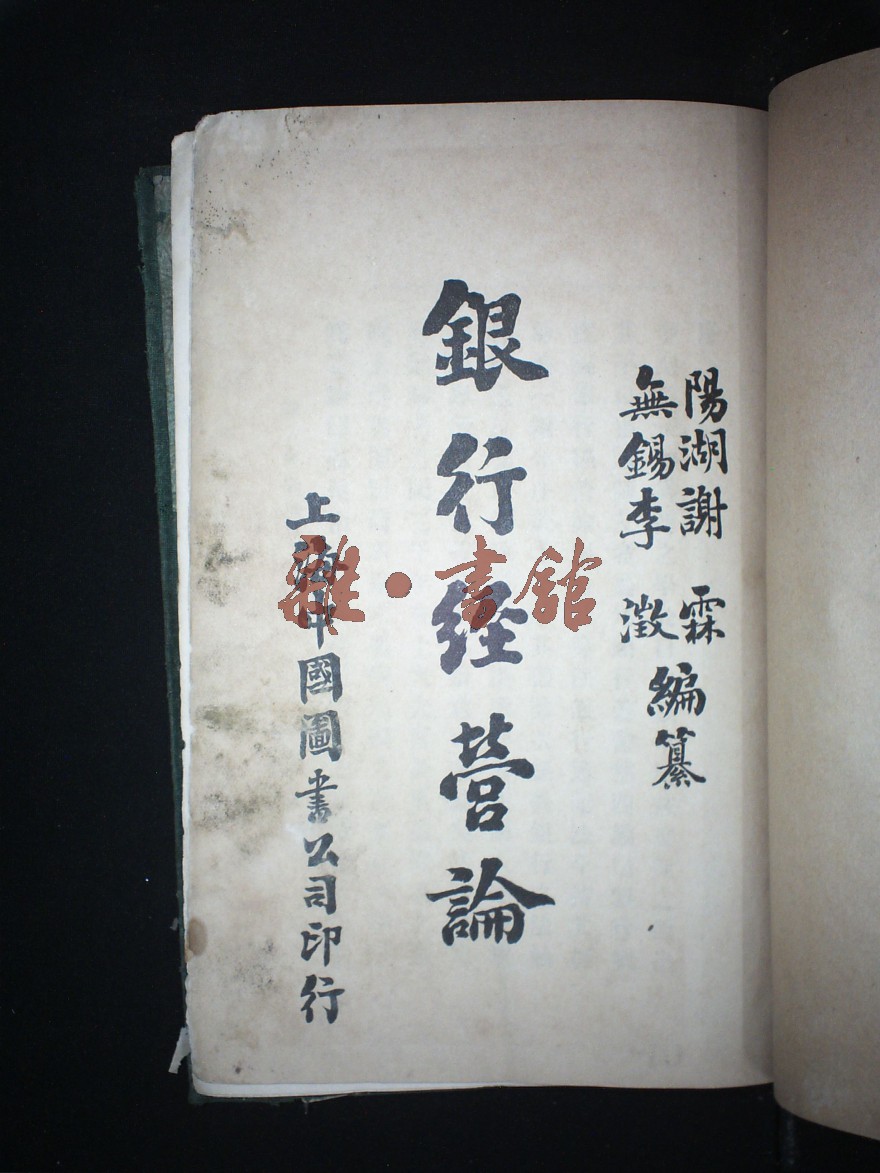 陽湖謝霖
無錫李澂
編纂
銀行經營論
上海中國圖書公司印行
雜·書館